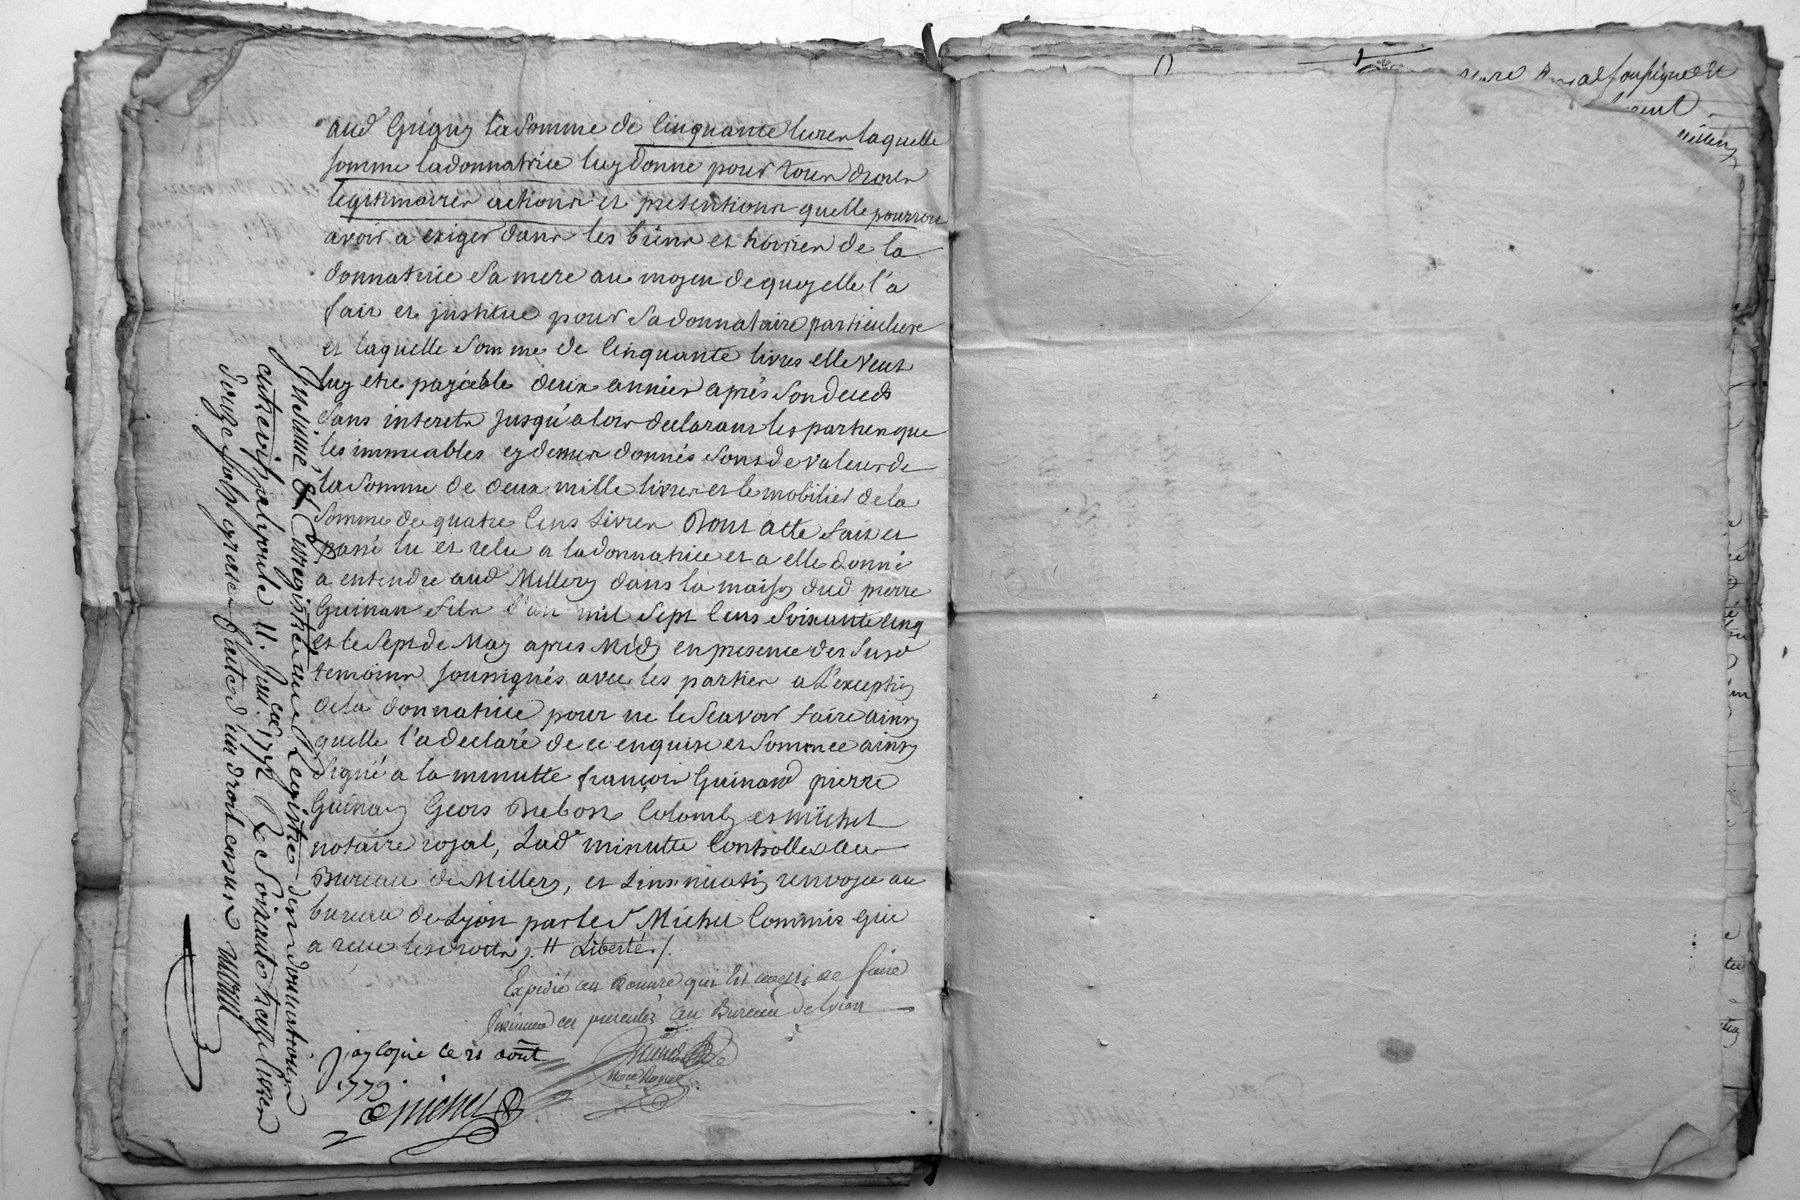 aud Grigny la Somme de Cinquante livres laquelle
somme la donnatrice luy donne pour tous droits
legitimaires actions et pretentions quelle pourroit
avoir a exiger dans les biens et hoirie de la
donnatrice Sa mere au moyen de quoy elle l'a
fait et jnstitue pour Sa donnataire particuliere
et laquelle Somme de Cinquante livres elle veut
luy etre payable deux années après Son deceds
Sans interets jusqu'alors declarant les parties que
les immeubles cy dessus donnés Sont de valeur de
la Somme de deux mille livres et le mobilier de la
Somme de quatre Cens Livres Dont acte fait et
passé lu et relu a la donnatrice et a elle donné
a entendre aud Millery dans la maison dud pierre
Guinan fils l'an mil Sept Cens Soixante cinq
et le Sept de May apres Midy en presence des Susd
temoins Soussignés avec les parties a L'exception
de la donnatrice pour ne le Scavoir faire ainsy
quelle l'a declaré de ce enquise et Sommée ainsy
Signé a la minutte françois Guinand pierre
Guinan Geors Colomb et Michel
notaire royal, Lad minutte Controllée au
Bureau de Millery, et L'insinuation renvoyée au
bureau de Lyon par le Sr Michel Commis qui
a receu les droits Liberté ./.
Expédié au donnataire qui Est de faire
Insinuer ces presentes au Bureau de Lyon
Michel
Nore Royal
J'ay copie le 21 aout
1773
Michel
Insinué & Enregistré au Registre des donnations
entrevifs a Lyon le 11. 1772 Reçu Soixante treize livres
douze sols